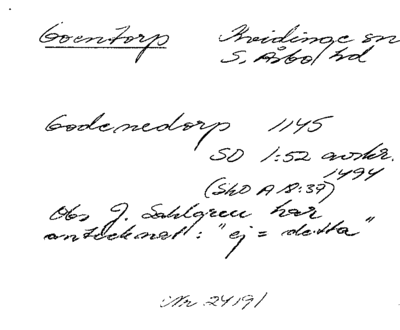 Goentorp Kvidinge sn
S. Åsbo hd
Godenedorp 1145
SD 1:52 avskr.
1494
(ShO A 8:39)
Obs J. Sahlgren har
antecknat: "ej = detta"
Nr 24191